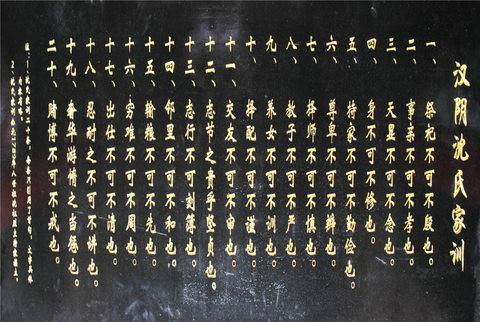 汉阴沈氏家训
一、祭祀不可不殷也。
二、事亲不可不孝也。
三、天显不可不念也。
四、身不可不修也。
五、持家不可不勤俭也。
六、尊卑不可不辨也。
七、择师不可不慎也。
八、教子不可不严也。
九、养女不可不训也。
十、择配不可不谨也。
十一、交友不可不审也。
十二、志节之贵乎坚贞也。
十三、志行不可刻薄也。
十四、邻里不可不和也。
十五、输粮不可不先也。
十六、穷难不可不周也。
十七、出仕不可不清也。
十八、忍耐之不可不讲也。
十九、奢华游惰之当惩也。
二十、赌博不可不戒也。